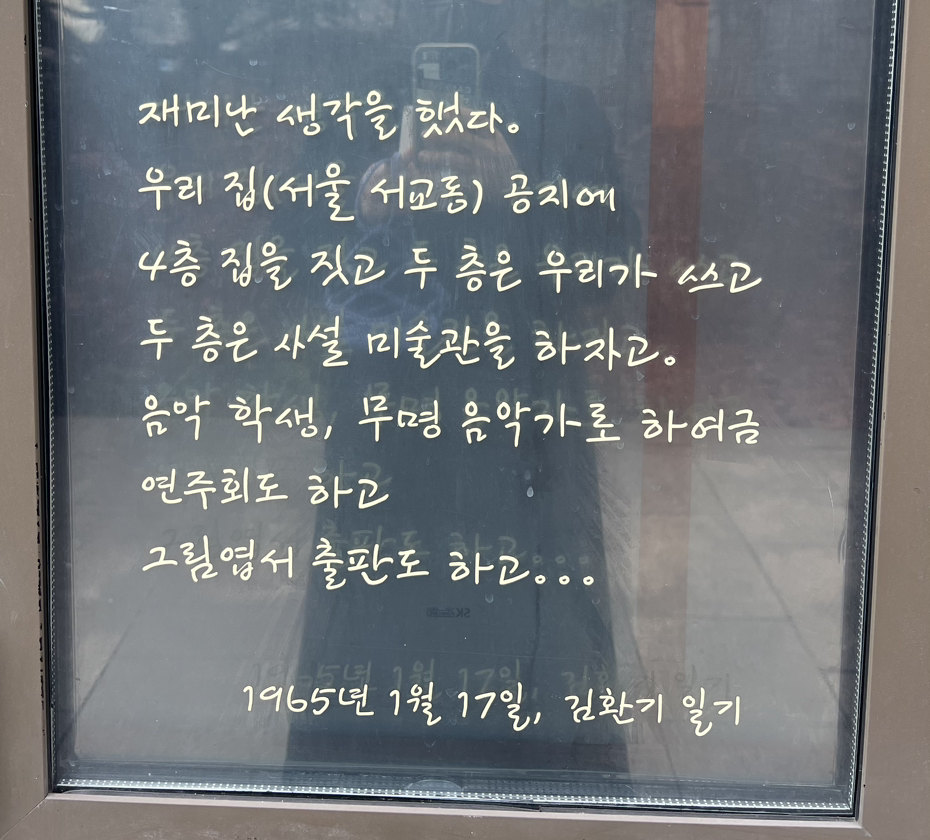 재미난 생각을 했다。
우리 집(서울 서교동) 공지에
4층 집을 짓고 두 층은 우리가 쓰고
두 층은 사설 미술관을 하자고。
음악 학생, 무명 음악가로 하여금
연주회도 하고
그림엽서 출판도 하고。。。
1965년 1월 17일, 김환기 일기